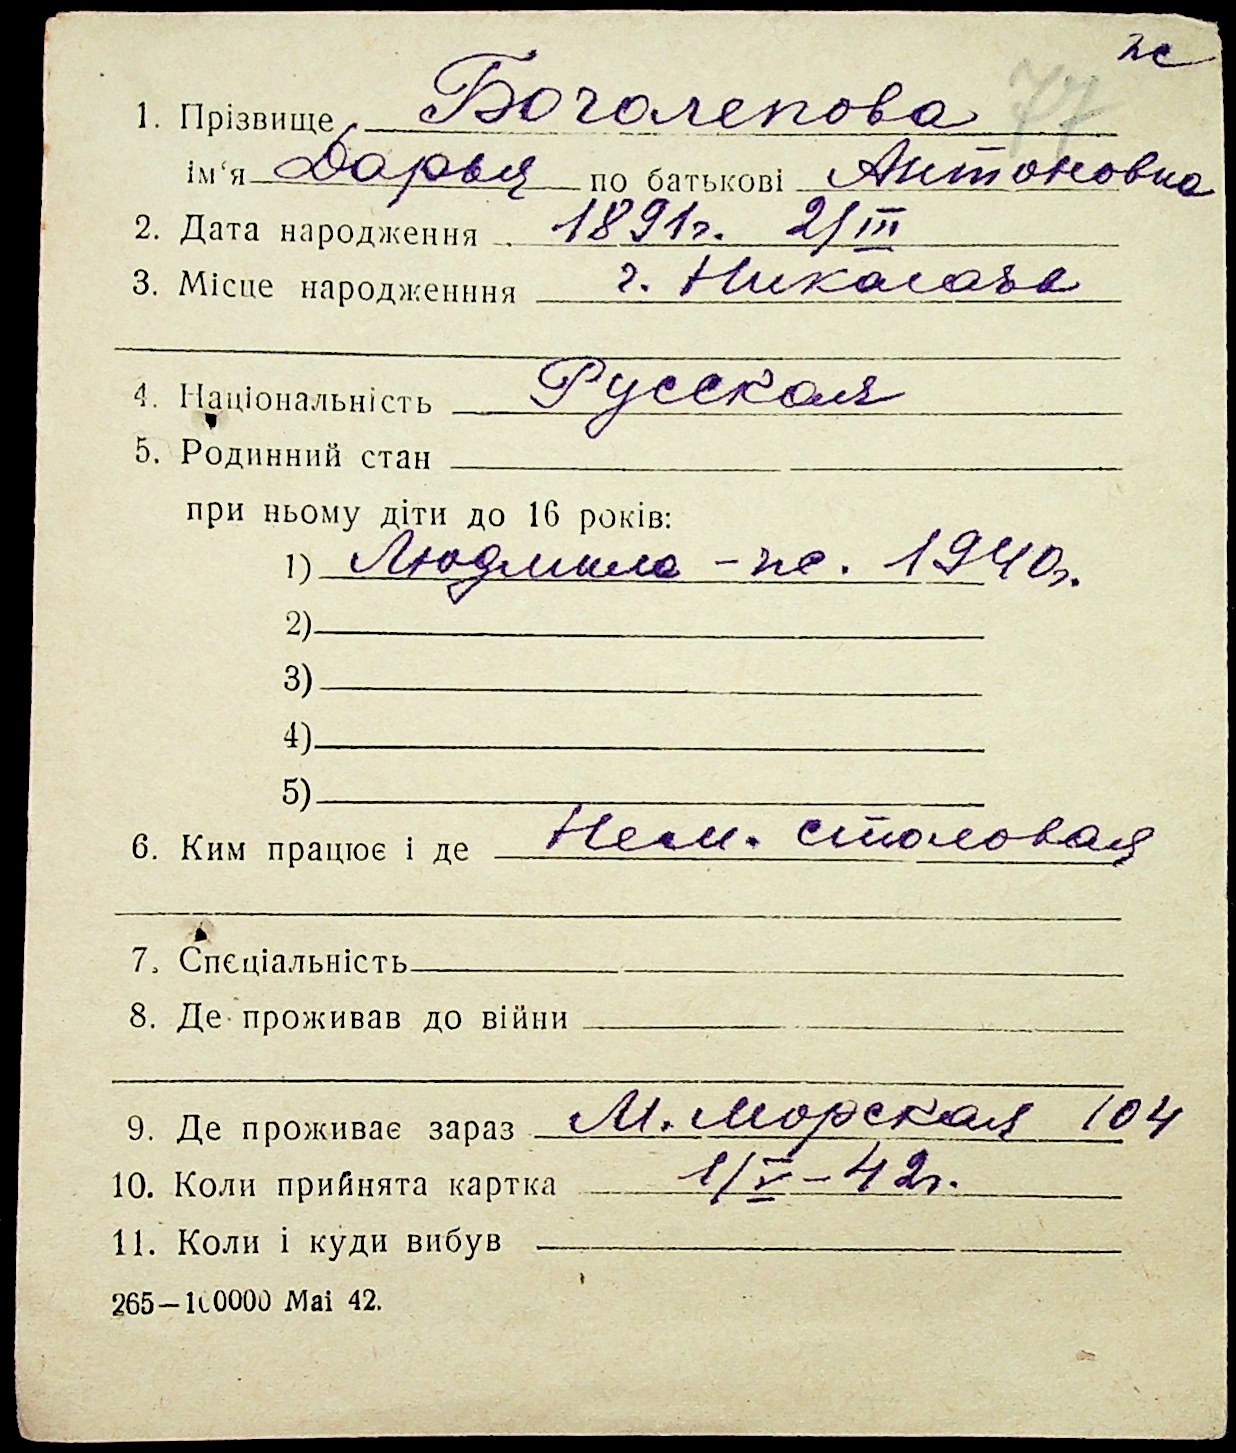 ж
77
1. Прізвище Боголепова
ім‘я Дарья по батькові Антоновна
2. Дата народження 1891г. 2/III
3. Місце народженння г. Николаев
4. Національність Русская
5. Родинний стан
при ньому діти до 16 років:
1) Людмила – ж. 1940г.
2)
3)
4)
5)
6. Ким працює і де Нем. столовая
7. Спєціальність
8. Де проживав до війни
9. Де проживає зараз М. Морская 104
10. Коли прийнята картка 1/V – 42г.
11. Коли і куди вибув
265—100000 Mai 42.